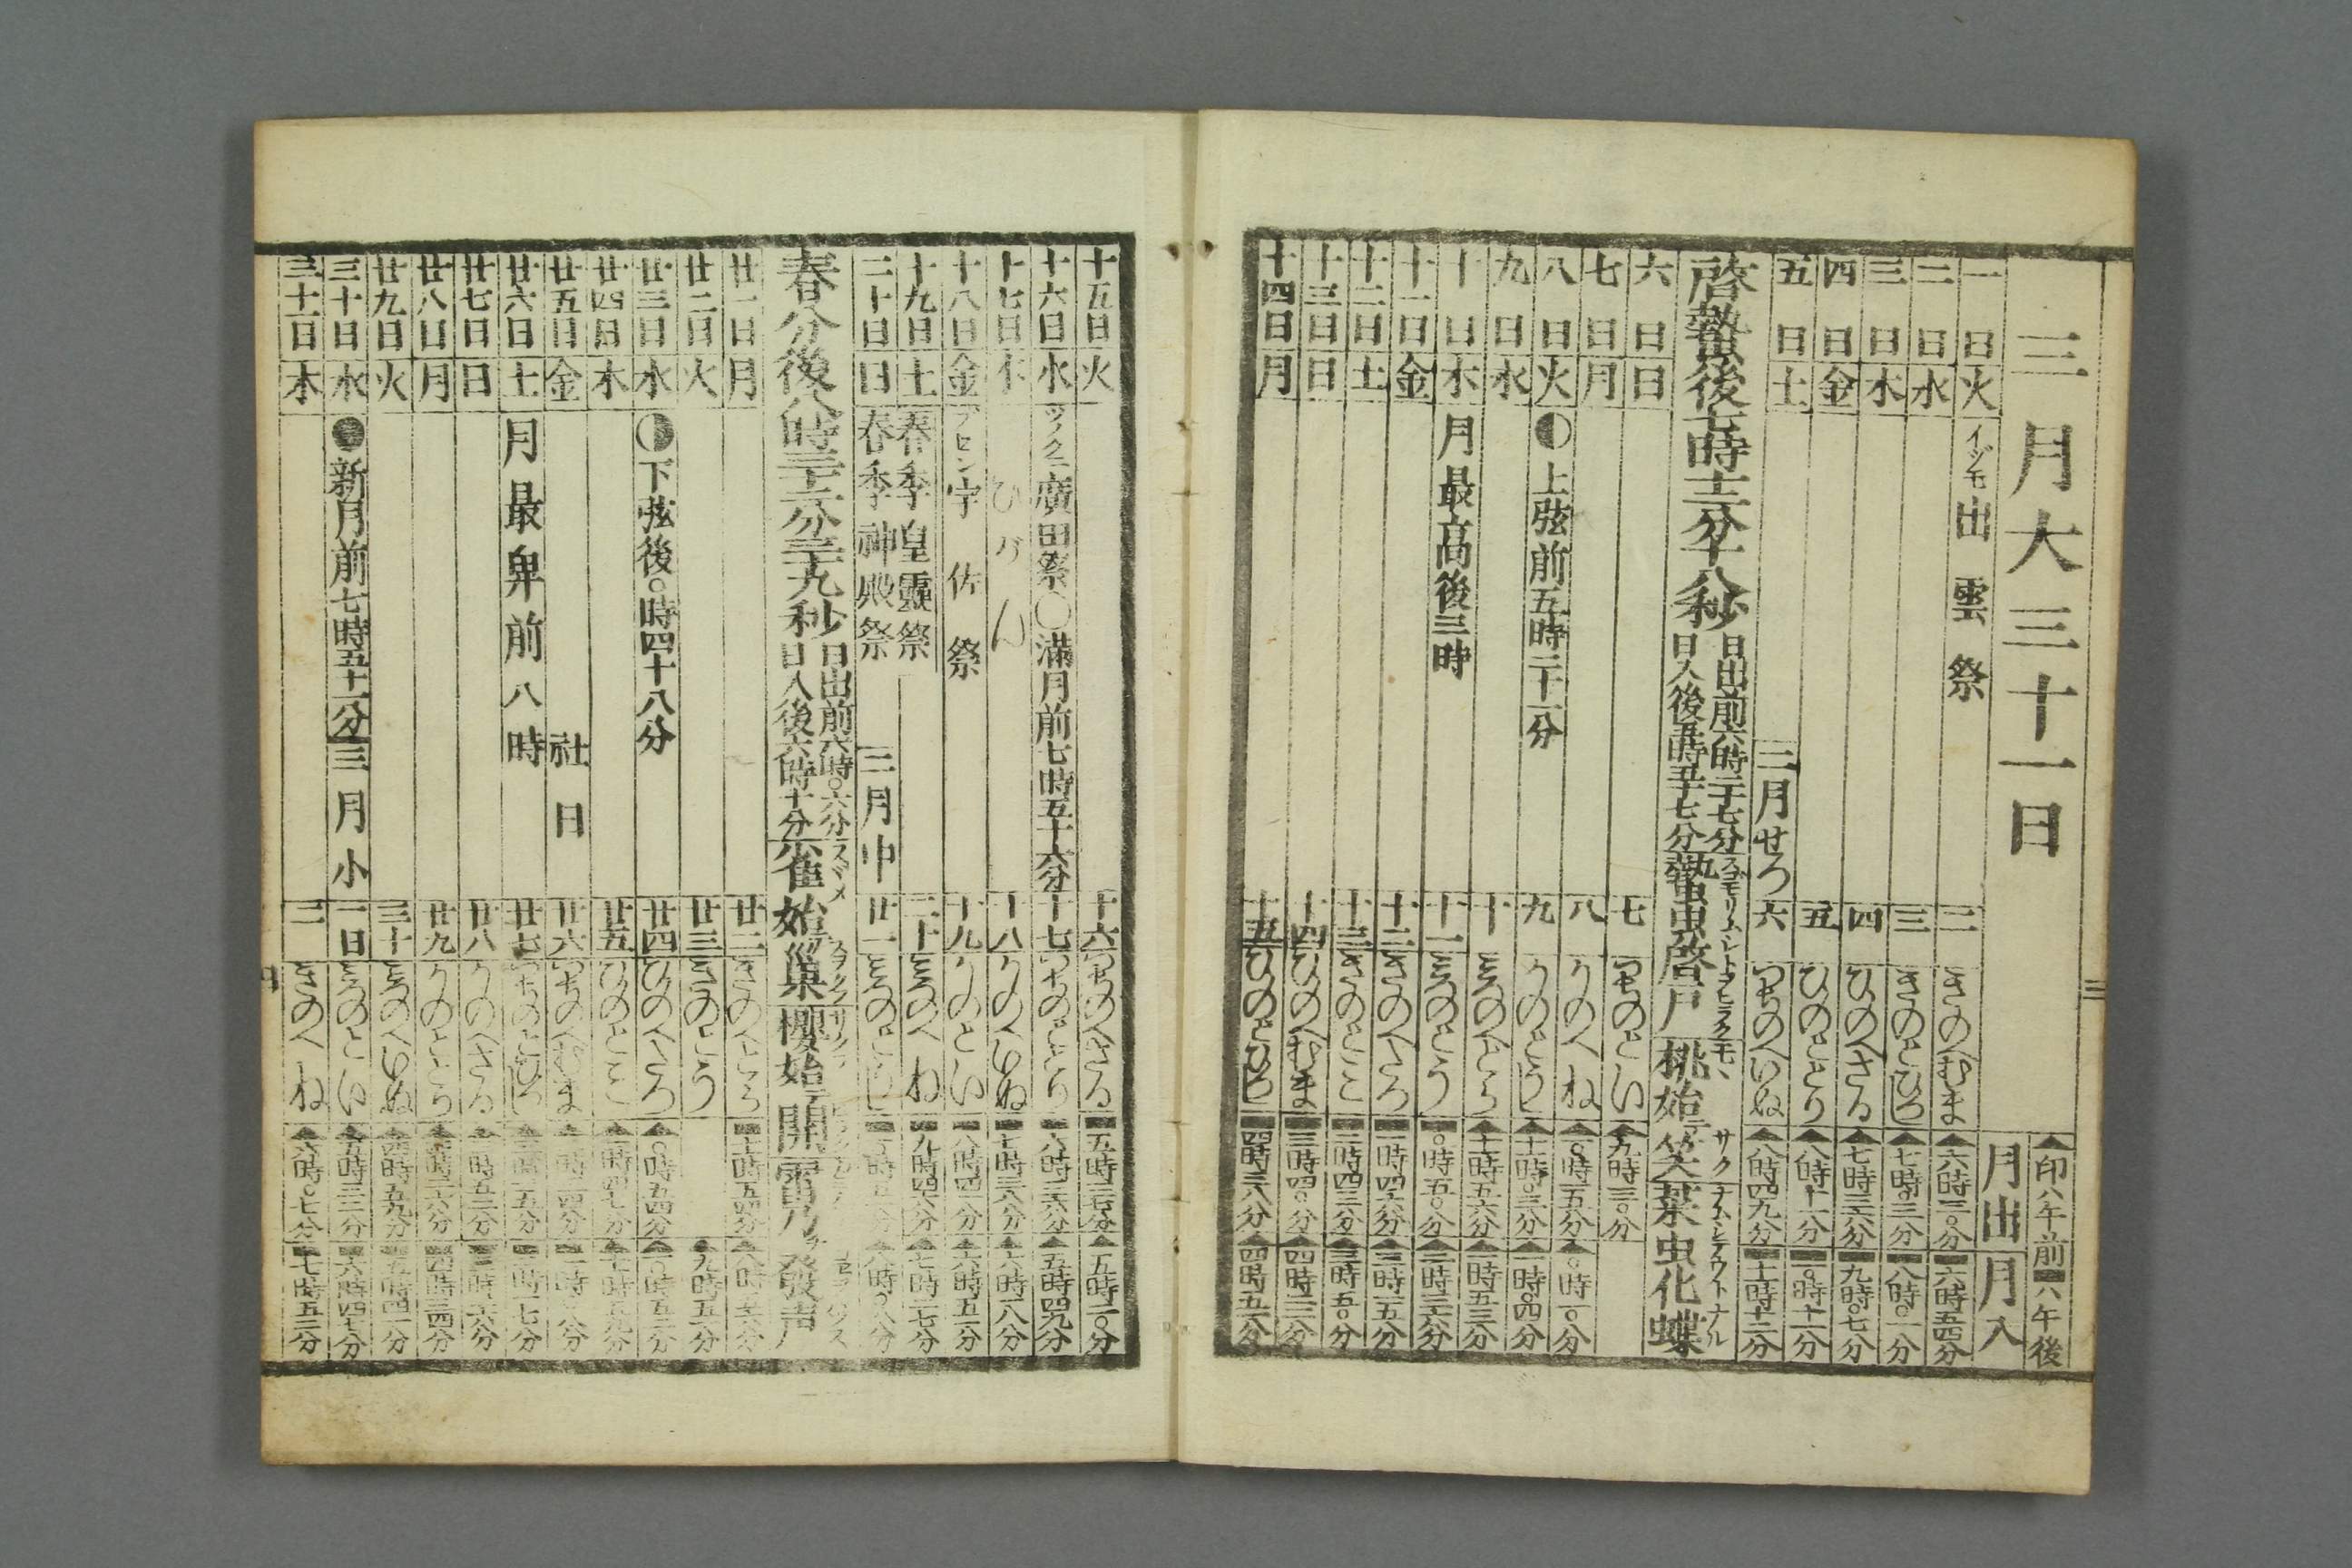 三
三月大三十一日
▲印八午前▬印八午後
月出 月入
一日 火 イヅモ 出雲祭 二 きのへむま ▲六時三〇分 ▬六時五四分
二日 水 三 きのとひつじ ▲七時〇三分 ▬八時〇一分
三日 木 四 ひのへさる ▲七時三六分 ▬九時〇七分
四日 金 五 ひのととり ▲八時十一分 ▬一〇時十一分
五日 土 二月せつ 六 つちのへいぬ ▲八時四九分 ▬十一時十二分
啓蟄後七時十二分十八秒 日出前六時二十七分 日入後五時五十七分 蟄虫啓戸 スゴモリムシトヲヒラク 桃始笑 モヽ サク 菜虫化蝶 ナムシテウトナル
六日 日 七 つちのとい ▲九時三〇分
七日 月 八 かのへね ▲一〇時一五分 ▲〇時一〇分
八日 火 上弦前五時二十一分 九 かのとうし ▲十一時〇三分 ▲一時〇四分
九日 水 十 みづのへとら ▲十一時五六分 ▲一時五三分
十日 木 月最高後三時 十一 みづのとう ▬〇時五〇分 ▲二時三六分
十一日 金 十二 きのへたつ ▬一時四六分 ▲三時一五分
十二日 土 十三 きのとみ ▬二時四三分 ▲三時五〇分
十三日 日 十四 ひのへむま ▬三時四〇分 ▲四時二二分
十四日 月 十五 ひのとひつじ ▬四時三八分 ▲四時五一分
十五日 火 十六 つちのへさる ▬五時三七分 ▲五時二〇分
十六日 水 ツノクニ 廣田祭 ○満月前七時五十六分 十七 つちのととり ▬六時三六分 ▲五時四九分
十七日 木 ひがん 十八 かのへいぬ ▬七時三八分 ▲六時一八分
十八日 金 ブゼン 宇佐祭 十九 かのとい ▬八時四一分 ▲六時五一分
十九日 土 春季皇靈祭 二十 みづのへね ▬九時四六分 ▲七時二七分
二十日 日 春季神殿祭 二月中 廿一 みづのとうし ▲八時〇八分
春分後八時三十六分三十九秒 日出前六時〇六分 日入後六時十分 雀始巣 スヾメ スヲクフ 櫻始開 サクラ 雷乃発声
廿一日 月 廿二 きのへとら ▬十一時五四分
廿二日 火 廿三 きのとう ●九時五一分
廿三日 水 下弦後〇時四十八分 廿四 ひのへたつ ▲〇時五四分
廿四日 木 廿五 ひのとみ
廿五日 金 社日 廿六 つちのへむま
廿六日 土 月最卑前八時 廿七 つちのとひつじ
廿七日 日 廿八 かのへさる
廿八日 月 廿九 かのととり ▬四時三四分
廿九日 火 三十 みづのへいぬ ▲四時五九分 ▬五時四一分
三十日 水 ●新月前七時五十二分 三月小 一日 みづのとい ▲五時三三分 ▬六時四七分
三十一日 木 二 きのへね ▲六時〇七分 ▬七時五二分
四